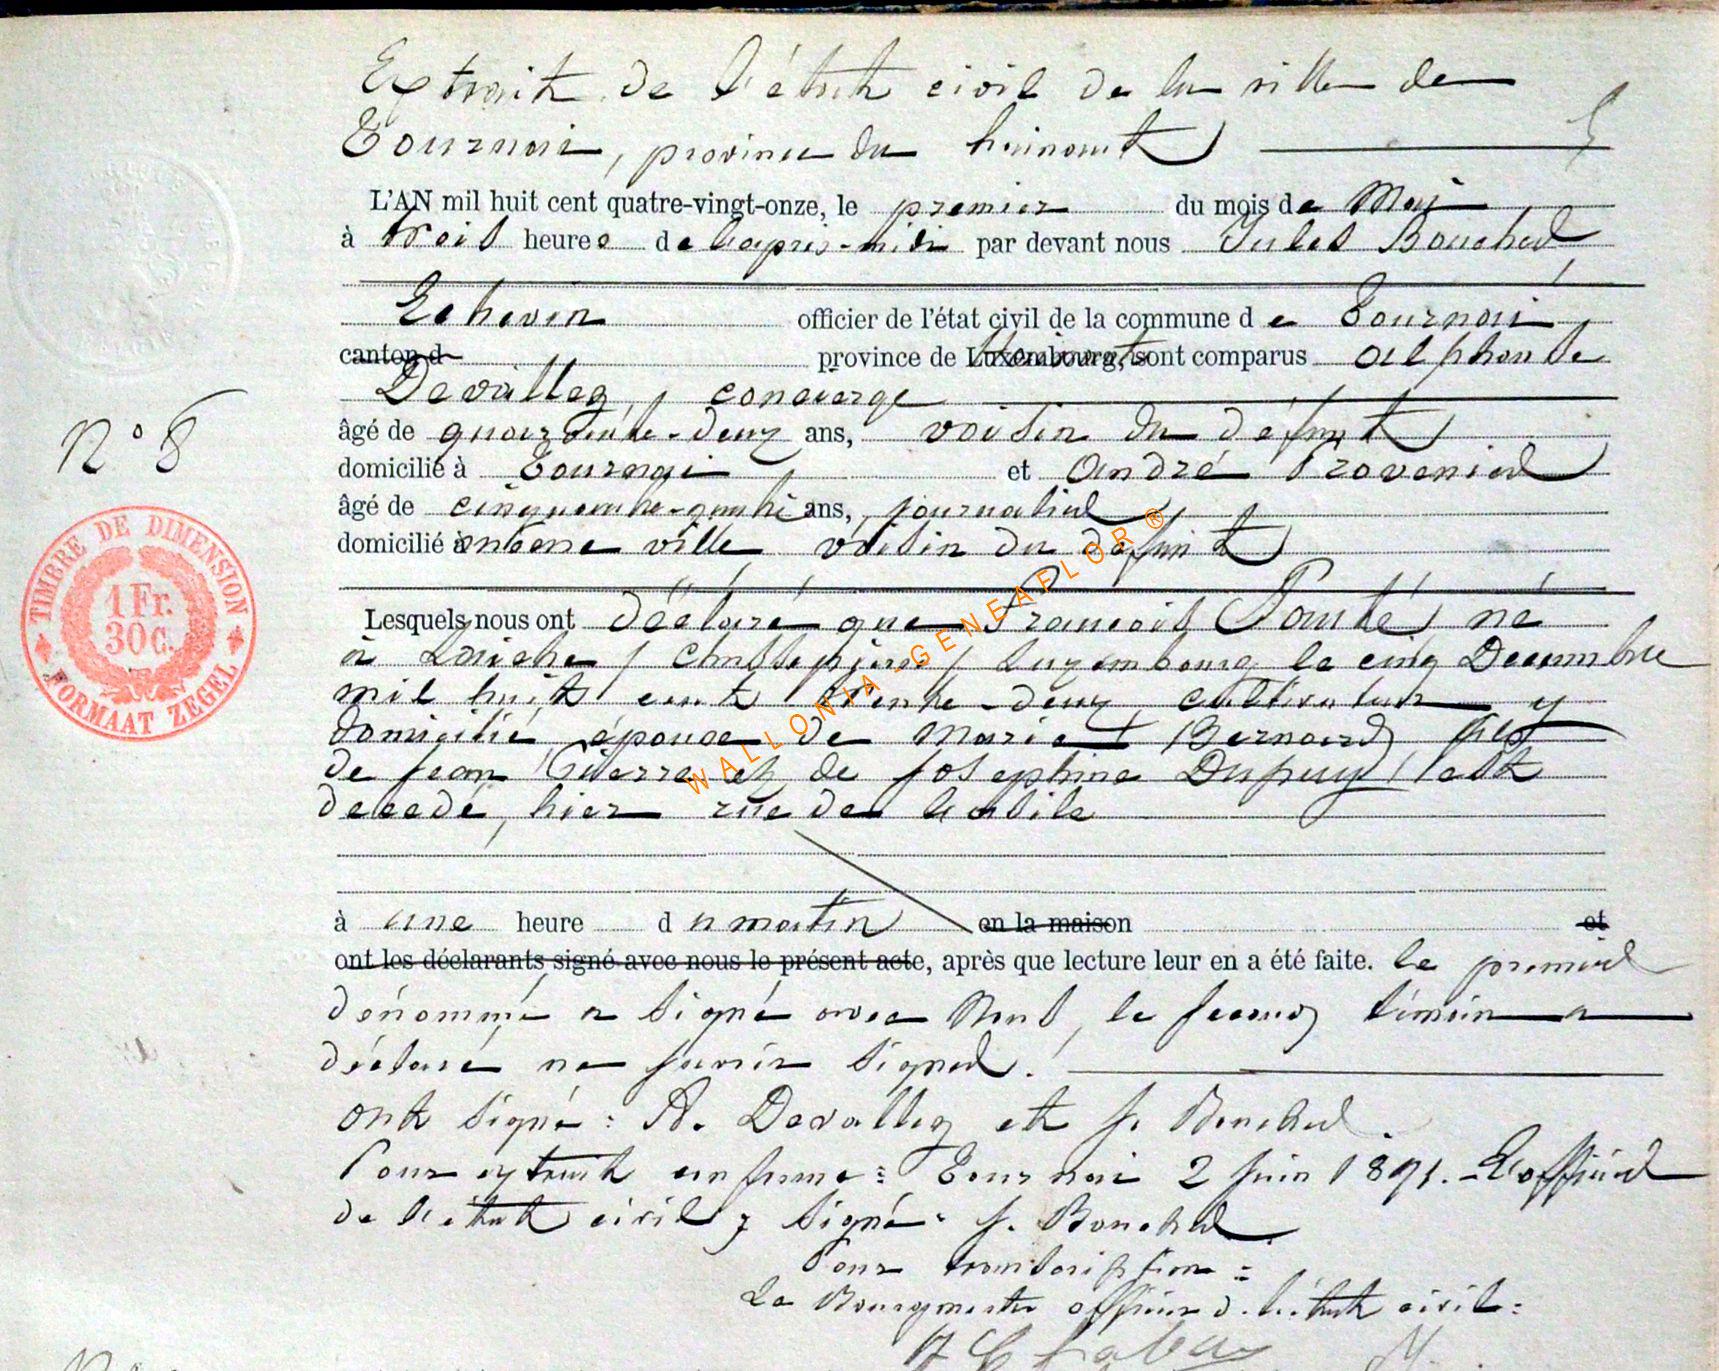 Extrait de l'état civil de la ville de
Tournai, province du hainaut
L'AN mil huit cent quatre-vingt-onze, le premier du mois de Mai
à trois heures de l'après-midi par devant nous Jules Bouchel
Echevin officier de l'état civil de la commune de Tournai
canton d province de Luxembourg, Hainaut sont comparus Alphonse
Devallez, concierge
âgé de quarante-deux ans, voisin du défunt
domicilié à Tournai et André
âgé de cinquante-quatre ans, journalier
domicilié à ville voisin du défunt
Lesquels nous ont déclaré que François Ponté, né
à Laiche Luxembourg le cinq Decembre
mil huit cent trente-deux, cultivateur y
domicilié, épouse de Marie Bernard, fils
de Jean Pierre et de Joséphine Dupuy, est
decedé, hier rue de l'asile
à une heure du matin en la maison et
ont les déclarants signé avec nous le présent acte, après que lecture leur en a été faite. le premier
dénommé a signé avec Nous, le second témoin a
déclaré ne savoir signer.
ont signé : A. Devallez et J. Bouchel.
Pour extrait conforme : Tournai 2 Juin 1891. - L'officier
de l'état civil, signé : J. Bouchel.
Pour transcription :
Le Bourgmestre officier d. l'état civil :
N° 8
TIMBRE DE DIMENSION
1 Fr.
30 C.
FORMAAT ZEGEL
WALLONIA-GENEAFLOR ®